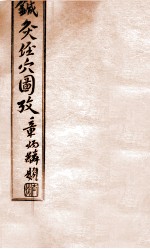 鍼灸經穴圖考
章炳麟題